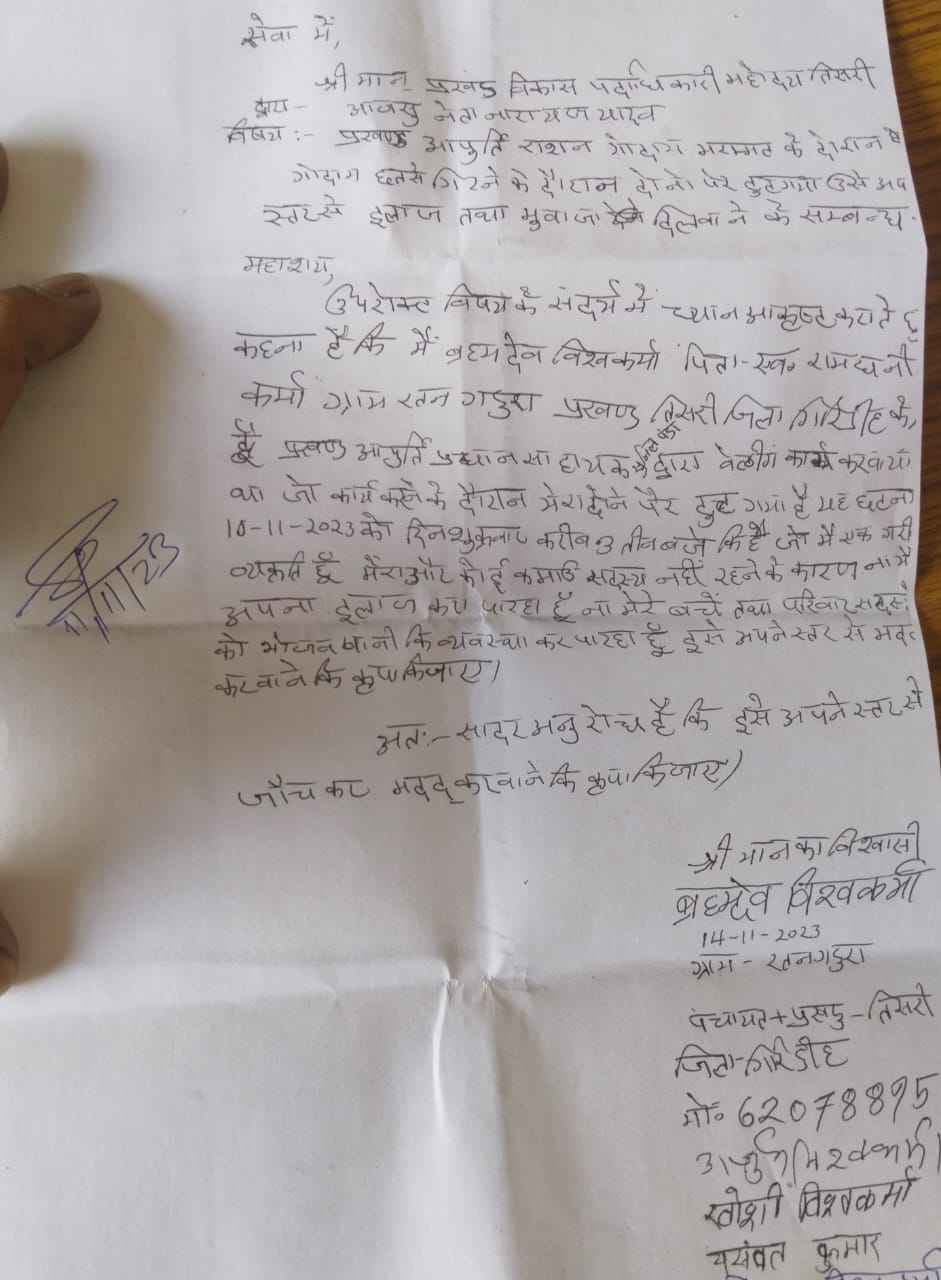 सेवा में,
श्री मान प्रखंड विकास पदाधिकारी महोदय तिसरी
द्वारा - आजसु नेता नारायण यादव
विषय :- प्रखण्ड आपुर्ति राशन गोदाम मरम्मत के दौरान
गोदाम छतसे गिरने के दौरान दोनो पैर टुट गया उसे अप
स्तर से इलाज तथा मुवाजा दिलवाने के सम्बन्ध
महाशय,
उपरोक्त विषय के संदर्भ में ध्यान आकृष्ट कराते हु
कहना है कि मैं ब्रह्मदेव विश्वकर्मा पिता-स्व० रामधनी
कर्मा ग्राम रतन गडुरा प्रखण्ड तिसरी जिला गिरिडीह के
हूँ प्रखण्ड आपुर्ति प्रधान सहायक द्वारा वेल्डींग कार्य करवाया
था जो कार्य करने के दौरान मेरा दोनो पैर टुट गया है यह घटना
10-11-2023 को दिन शुक्रवार करीब 3 तीन बजे कि है जो मै एक गरी
व्यक्ति हूँ मेरा और कोई कमाउ सदस्य नहीं रहने के कारण ना मैं
अपना इलाज करा पा रहा हूँ ना मेरे बच्चें तथा परिवार सदस्य
को भोजन पानी कि व्यवस्था कर पा रहा हूँ इसे अपने स्तर से मदद
करवाने कि कृपा किजाए।
अतः- सादर अनुरोध है कि इसे अपने स्तर से
जाँच कर मदद् करवाने कि कृपा किजाए।
11/11/23
श्री मान का विश्वासी
ब्रह्मदेव विश्वकर्मा
14-11-2023
ग्राम - रतनगडुरा
पंचायत+प्रखण्ड - तिसरी
जिला-गिरिडीह
मो० 62078895
विश्वकर्मा
कुमार